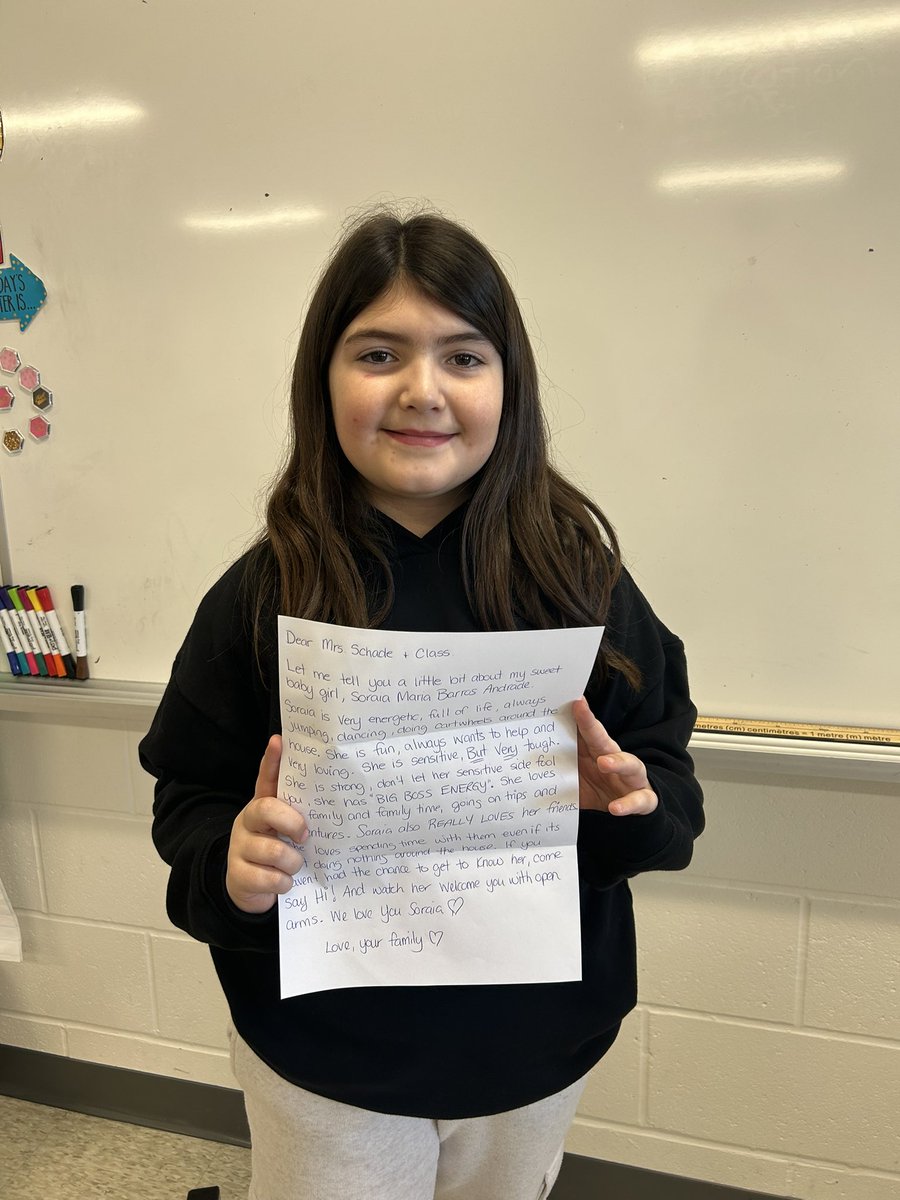 DAY'S
TER IS...
Dear Mrs. Schade + Class
Let me tell you a little bit about my sweet
baby girl, Soraia Maria Barros Andrade.
Soraia is very energetic, full of life, always
jumping, dancing, doing cartwheels around the
house. She is fun, always wants to help and
very loving. She is sensitive, But Very tough.
She is strong, don't let her sensitive side fool
you, she has "BIG BOSS ENERGY". She loves
family and family time, going on trips and
entures. Soraia also REALLY LOVES her friends.
She loves spending time with them even if its
doing nothing around the house. If you
avent had the chance to get to know her, come
say Hi! And watch her welcome you with open
arms. We love You Soraia ♡
Love, your family ♡
mètres (cm) centimètres = 1 metre (m) mètre